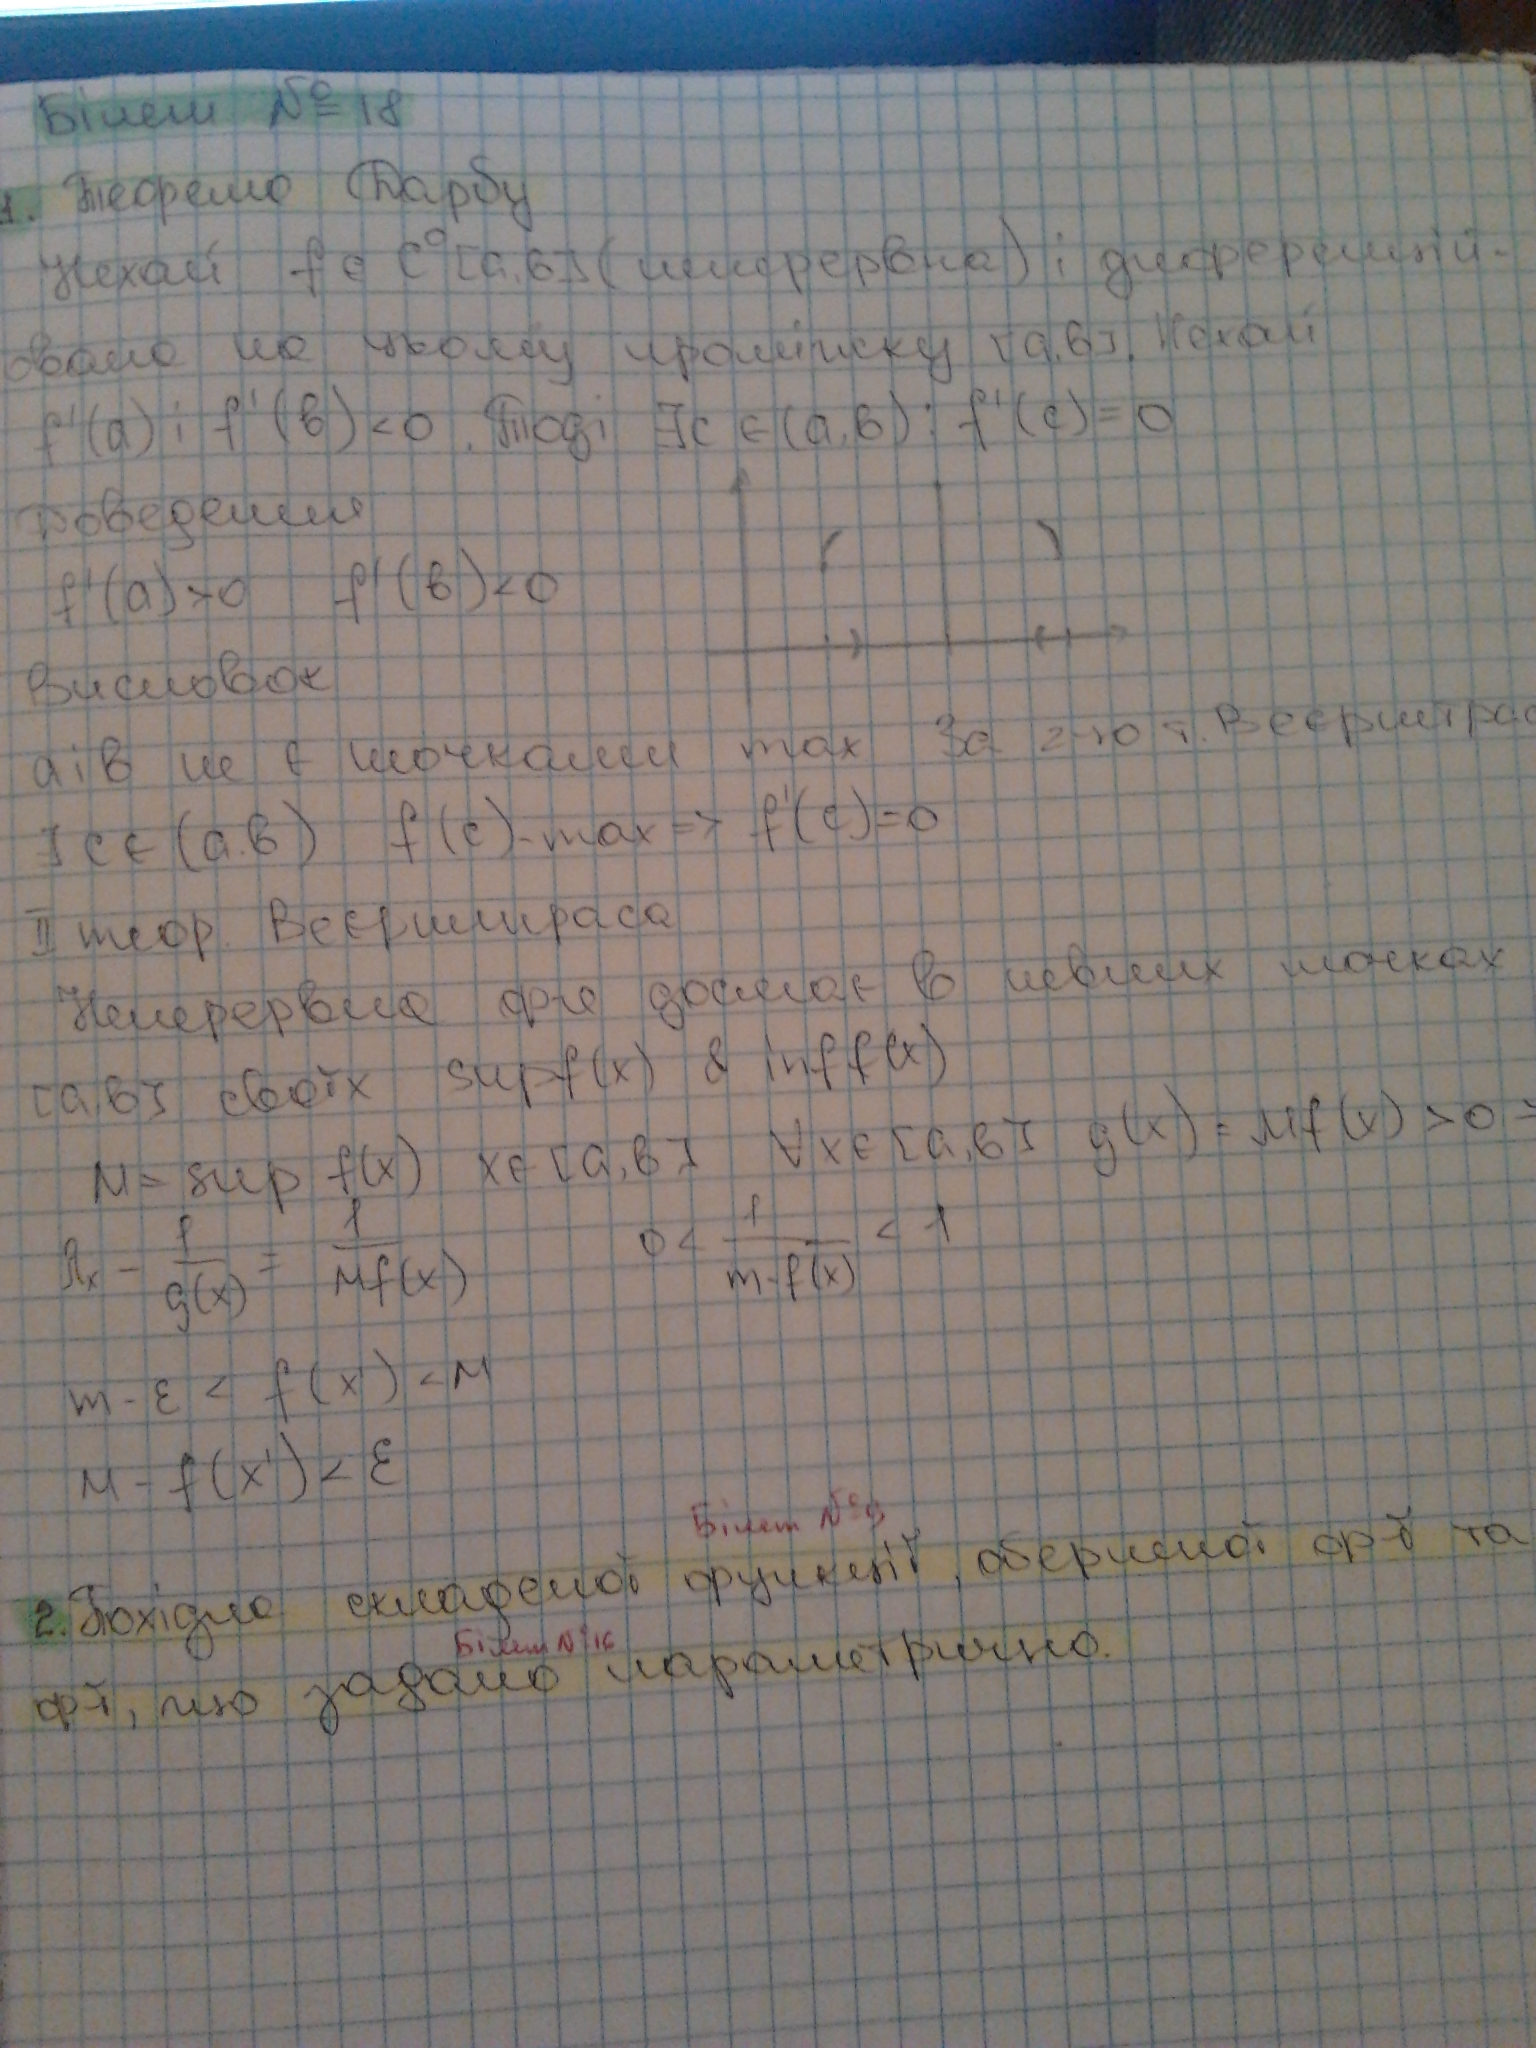 Білет № 18
1. Теорема Дарбу
Нехай f ∈ C⁰[a,в] (неперервна) і диференцій-
ована на цьому проміжку [a,в]. Нехай
f'(a) i f'(в)<0. Тоді ∃c ∈ (a,в): f'(c)=0
Доведення
f'(a)>0 f'(в)<0
Висновок
a i в не є точками max За 2-ю т. Веєрштрас
∃ c ∈ (a.в) f(c)-max => f'(c)=0
II теор. Веєрштраса
Неперервна ф-я досягає в певних точках
[a,в] своїх sup f(x) & inf f(x)
M = sup f(x) x∈[a,в] ∀x∈[a,в] g(x) = Mf(x) >0 =
λx - 1/g(x) = 1/Mf(x) 0 < 1/m-f(x) < 1
m-ε < f(x') < M
M - f(x') < ε
Білет № 9
2. Похідна складеної функції, оберненої ф-ї та
Білет № 16
ф-ї, що задано параметрично.